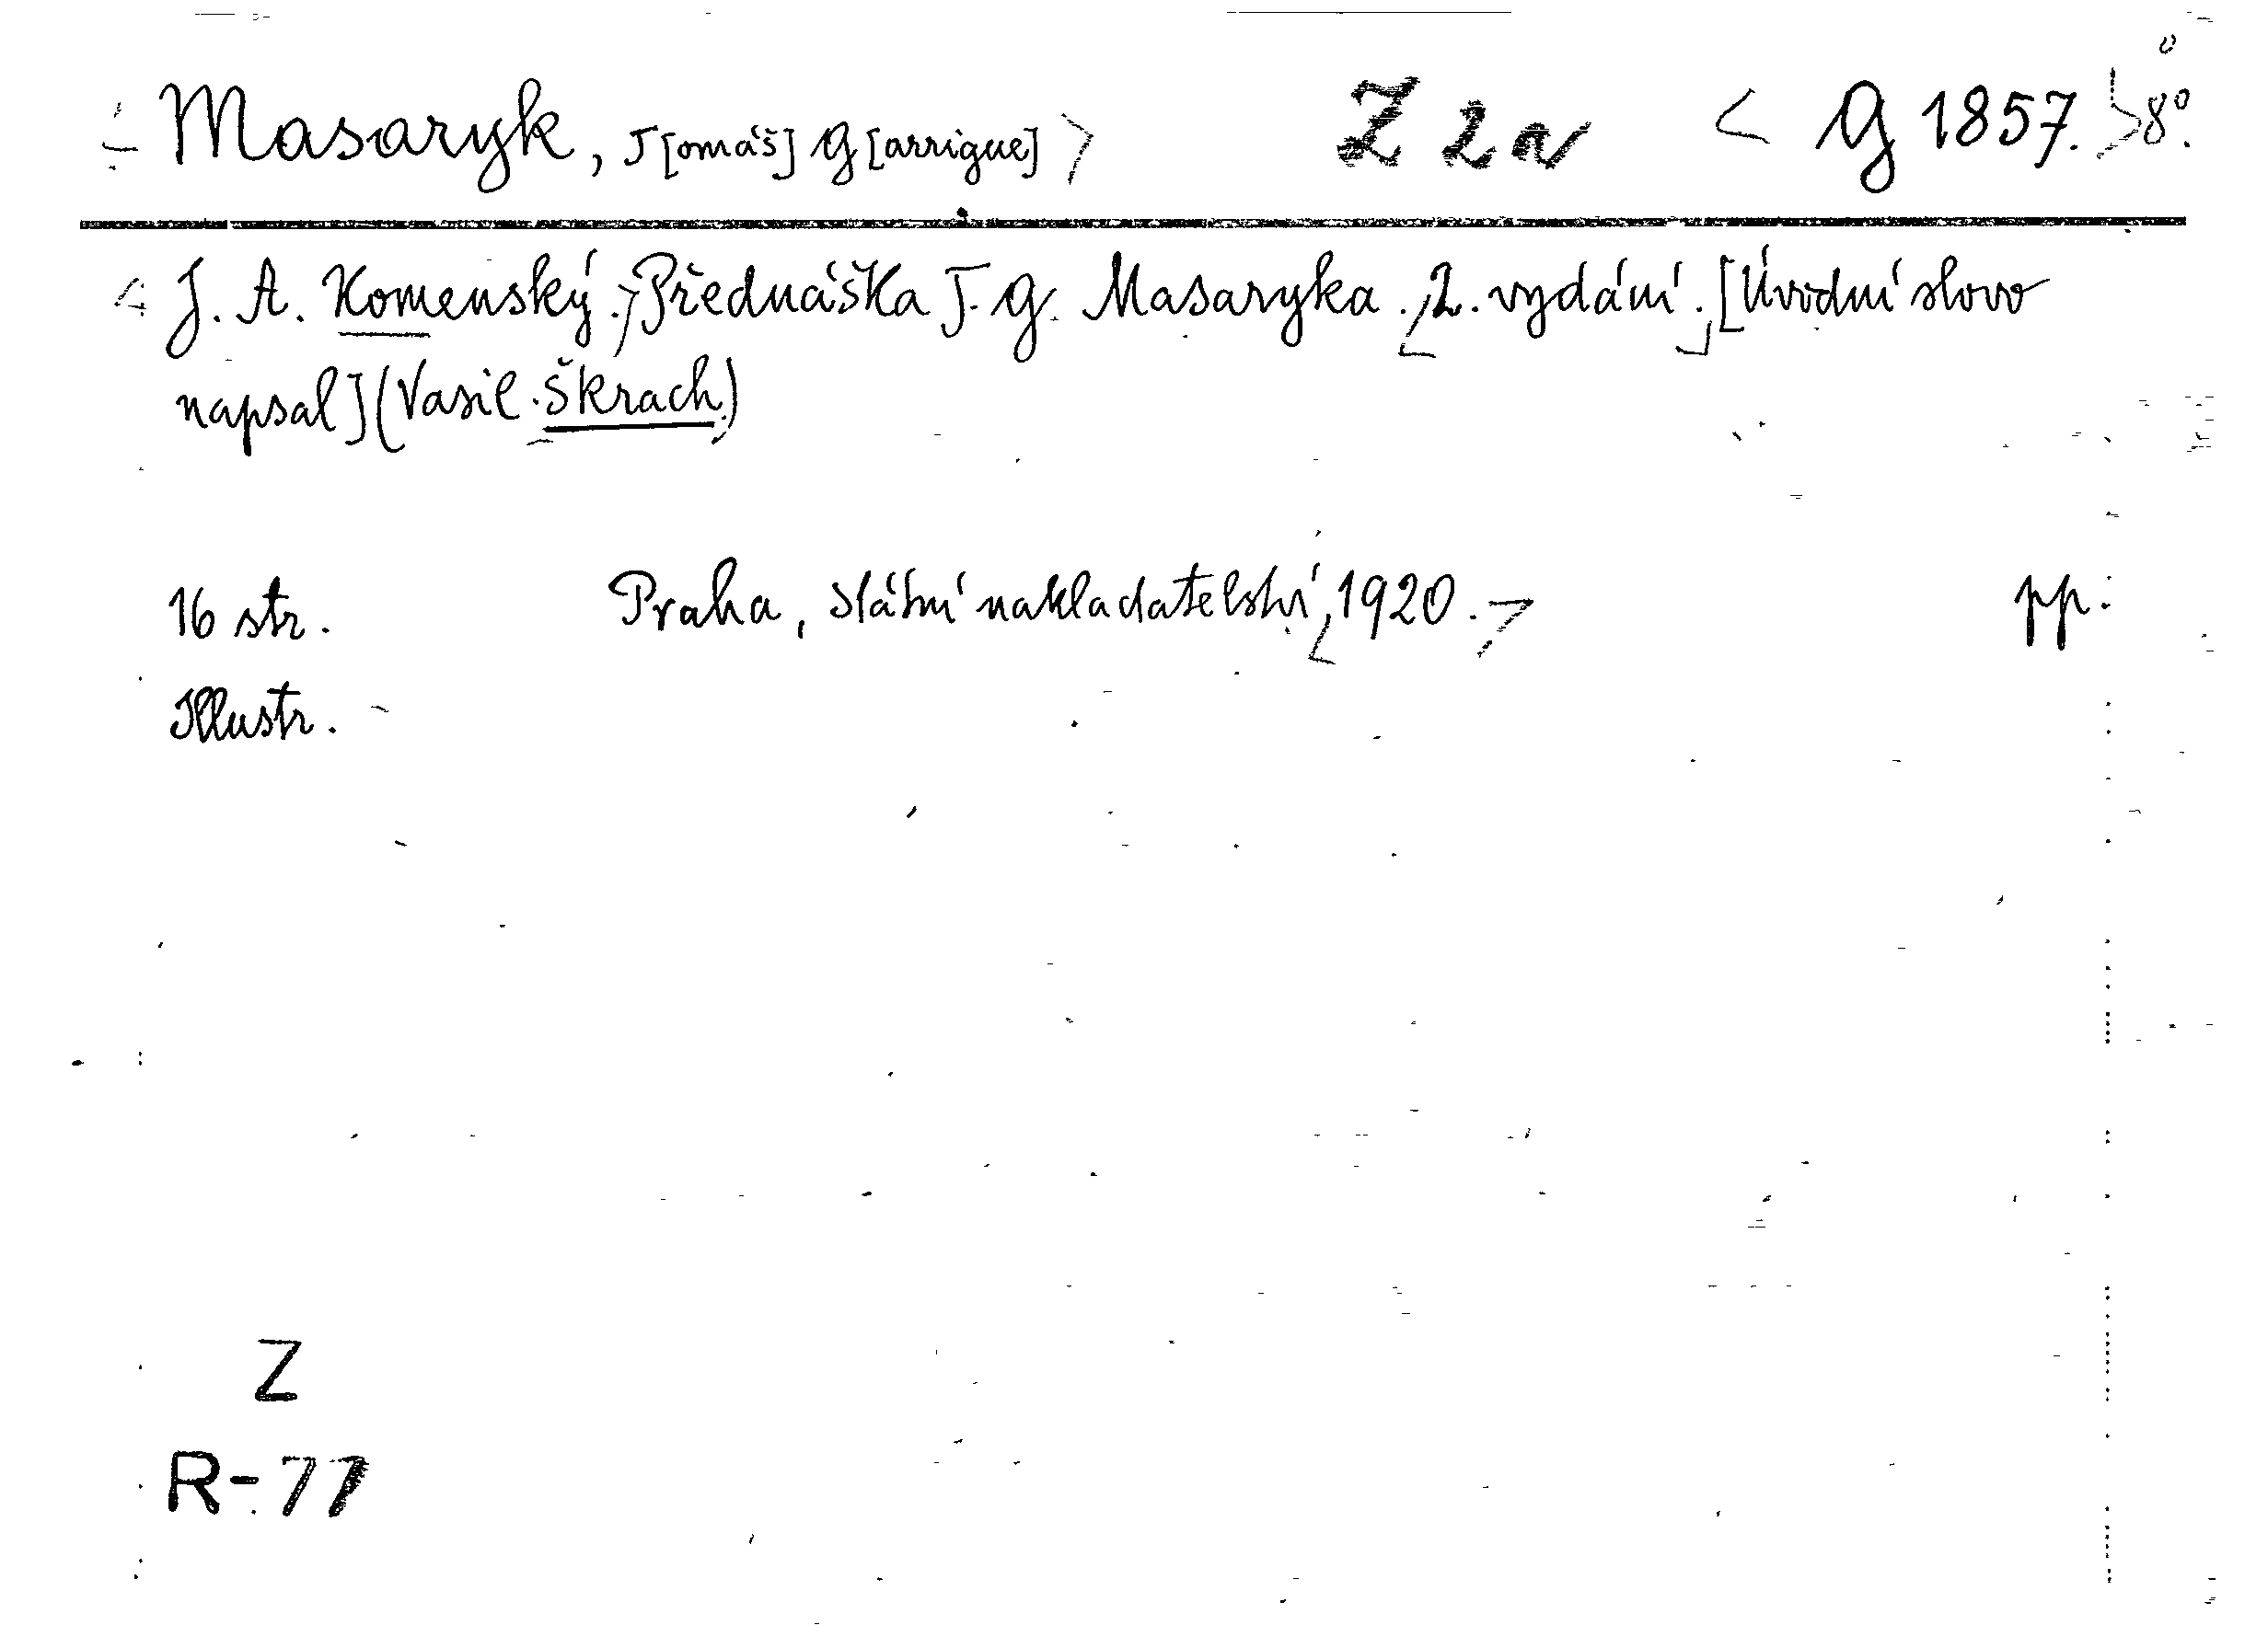 Masaryk, T[omáš] G[arrigue] Z 2a G 1857. 8°.
J. A. Komenský. Přednáška T. G. Masaryka. 2. vydání. [Úvodní slovo
napsal] (Vasil Škrach)
16 str. Praha, Státní nakladatelství, 1920. pp.
Illustr.
Z
R-77